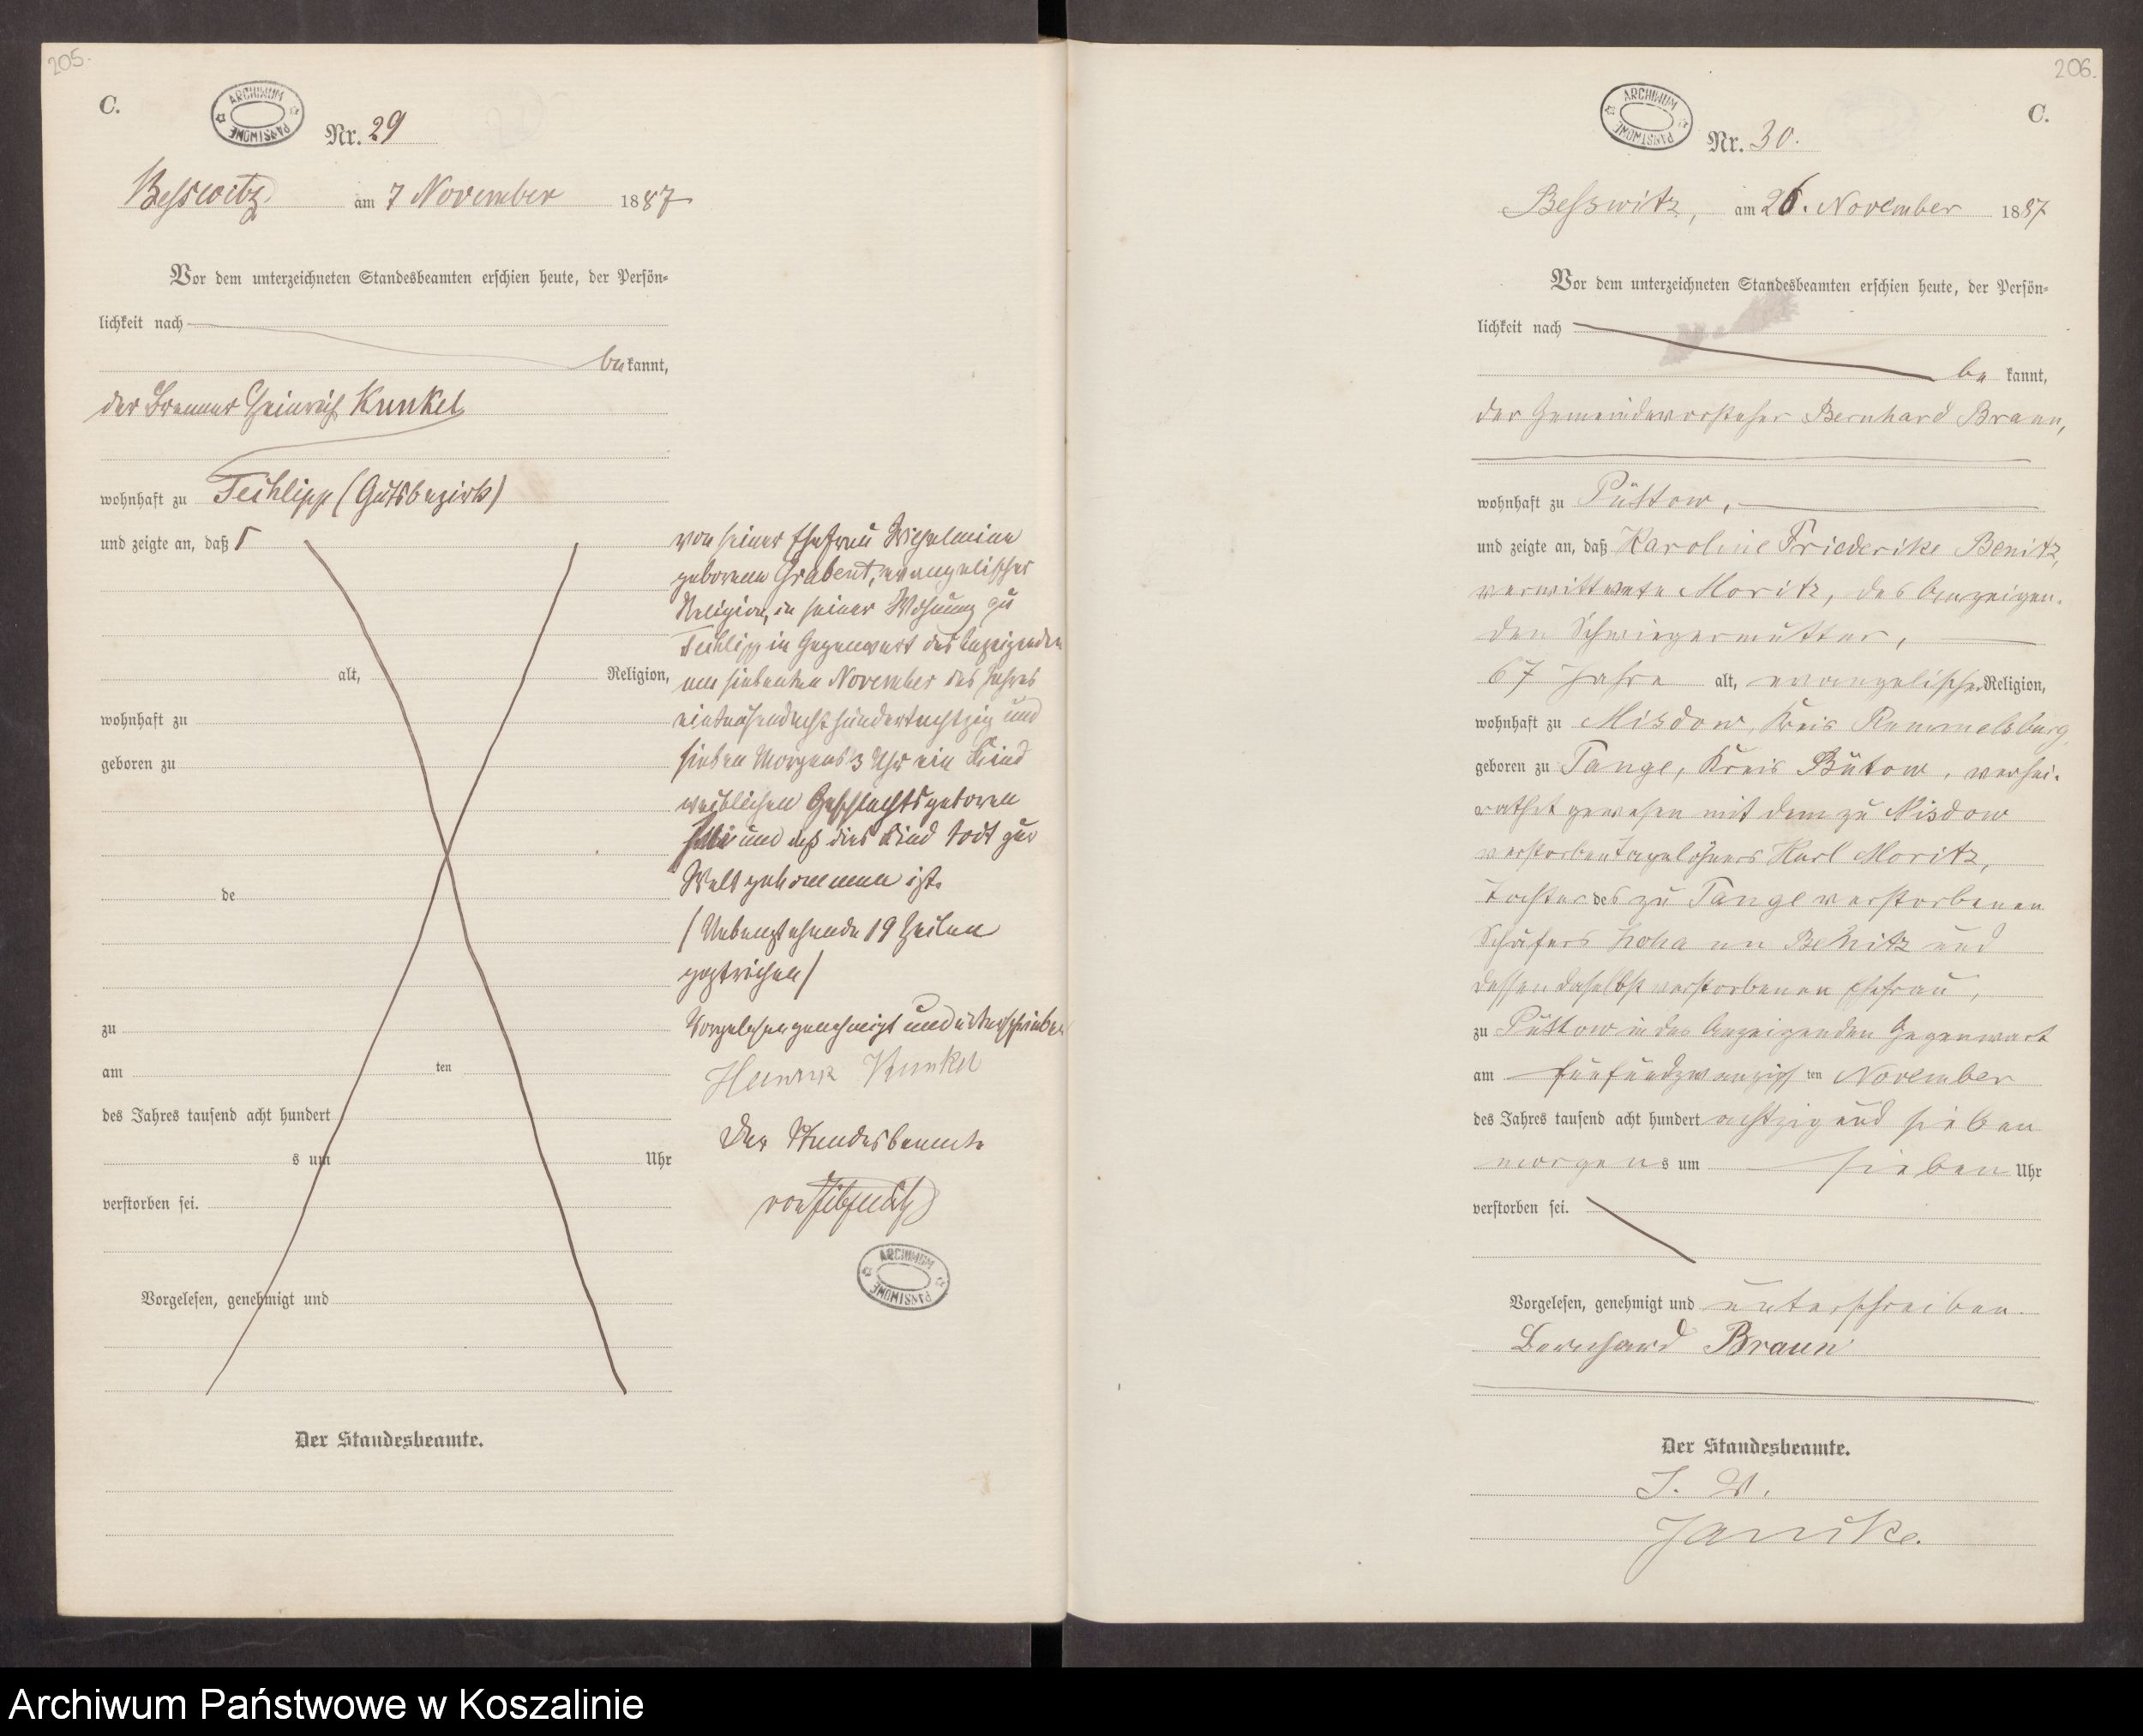 205.
C.
ARCHIWUM PAŃSTWOWE
Nr. 29
Besswitz am 7 November 1887
Vor dem unterzeichneten Standesbeamten erschien heute, der Persön-
lichkeit nach
bekannt,
der Brenner Heinrich Kunkel
wohnhaft zu Techlipp (Gutsbezirk)
und zeigte an, daß
alt, Religion,
wohnhaft zu
geboren zu
de
zu
am ten
des Jahres tausend acht hundert
s um Uhr
verstorben sei.
Vorgelesen, genehmigt und
Der Standesbeamte.
von seiner Ehefrau Wilhelmine
geborene Grabent, evangelischer
Religion, in seiner Wohnung zu
Techlipp in Gegenwart des Anzeigenden
am siebenten November des Jahres
eintausendachthundertachtzig und
sieben Morgens 3 Uhr ein Kind
weiblichen Geschlechts geboren
sei und daß dies Kind todt zur
Welt gekommen ist.
(Nebenstehende 19 Zeilen
gestrichen)
Vorgelesen genehmigt und unterschrieben
Heinrich Kunkel
Der Standesbeamte
von
ARCHIWUM PAŃSTWOWE
206.
C.
ARCHIWUM PAŃSTWOWE
Nr. 30.
Besswitz, am 26. November 1887
Vor dem unterzeichneten Standesbeamten erschien heute, der Persön-
lichkeit nach
be kannt,
der Gemeindevorsteher Bernhard Braun,
wohnhaft zu Püstow,
und zeigte an, daß Karoline Friederike Benitz,
verwittwete Moritz, des Anzeigen-
den Schwiegermutter,
67 Jahre alt, evangelischer Religion,
wohnhaft zu Misdow, Kreis Rummelsburg,
geboren zu Tange, Kreis Bütow, verhei-
rathet gewesen mit dem zu Misdow
verstorben Tagelöhners Karl Moritz,
Tochter des zu Tange verstorbenen
Schäfers Johann Benitz und
dessen daselbst verstorbenen Ehefrau,
zu Püstow in des Anzeigenden Gegenwart
am fünfundzwanzigsten November
des Jahres tausend acht hundert achtzig und sieben
morgens um sieben Uhr
verstorben sei.
Vorgelesen, genehmigt und unterschreiben.
Bernhard Braun
Der Standesbeamte.
I. V.
Janike.
Archiwum Państwowe w Koszalinie